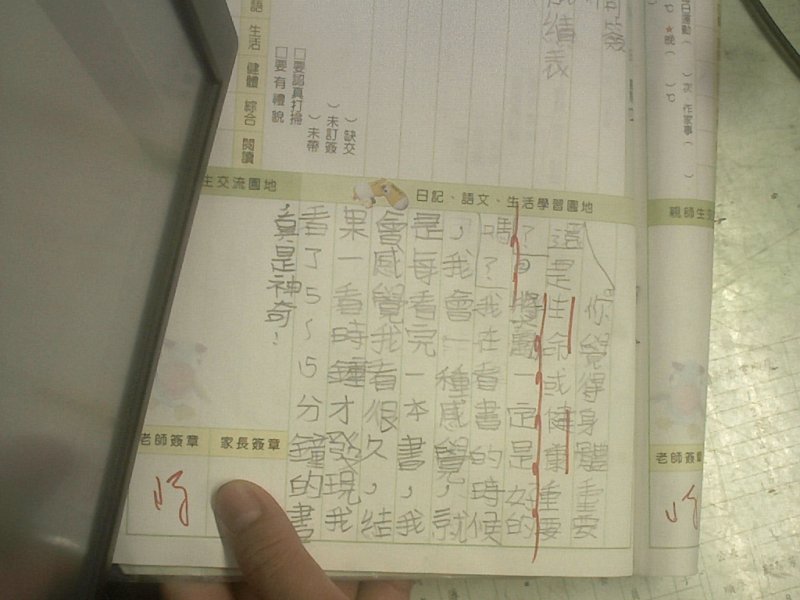 日運動（　）次 作家事（　）
℃ ★晚（　）℃
成績表
（　）缺交
（　）未訂簽
（　）未帶
□要認真打掃
□要有禮貌
語 生活 健體 綜合 閱讀
生交流園地
日記、語文、生活學習園地
親師生交
你覺得身體重要
還是生命或健康重要
？獎勵一定是好的
嗎？我在看書的時候
，我會一種感覺，就
是每看完一本書，我
會感覺我看很久，結
果一看時鐘才發現我
看了5~15分鐘的書
真是神奇！
老師簽章
家長簽章
老師簽章